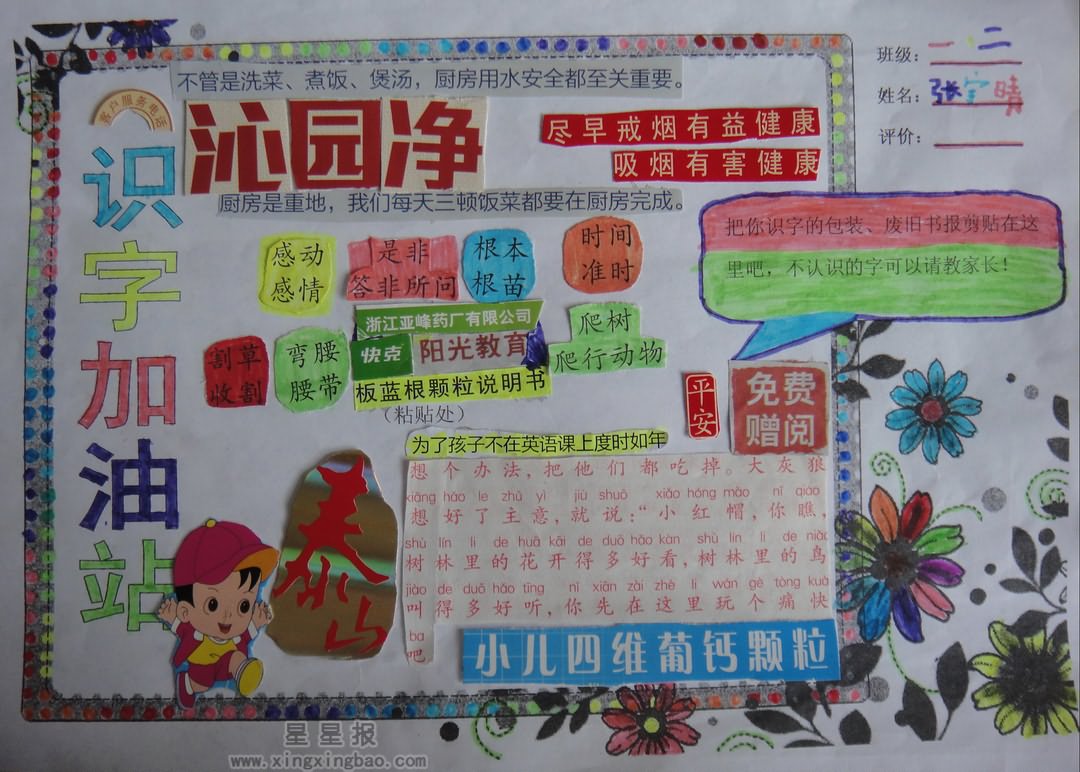 班级：一、二
姓名：张宇晴
评价：
客户服务电话
识字加油站
不管是洗菜、煮饭、煲汤，厨房用水安全都至关重要。
沁园净
厨房是重地，我们每天三顿饭菜都要在厨房完成。
尽早戒烟有益健康
吸烟有害健康
把你识字的包装、废旧书报剪贴在这
里吧，不认识的字可以请教家长！
感动
感情
是非
答非所问
根本
根苗
时间
准时
浙江亚峰药厂有限公司
快克
阳光教育
板蓝根颗粒说明书
割草
收割
弯腰
腰带
爬树
爬行动物
（粘贴处）
平安
免费
赠阅
为了孩子不在英语课上度时如年
泰山
想个办法，把他们都吃掉。大灰狼
xiǎng hǎo le zhǔ yì jiù shuō xiǎo hóng mào nǐ qiáo
想好了主意，就说：“小红帽，你瞧，
shù lín lǐ de huā kāi de duō hǎo kàn shù lín lǐ de niǎo
树林里的花开得多好看，树林里的鸟
jiào de duō hǎo tīng nǐ xiān zài zhè lǐ wán gè tòng kuà
叫得多好听，你先在这里玩个痛快
ba
吧
小儿四维葡钙颗粒
星星报
www.xingxingbao.com